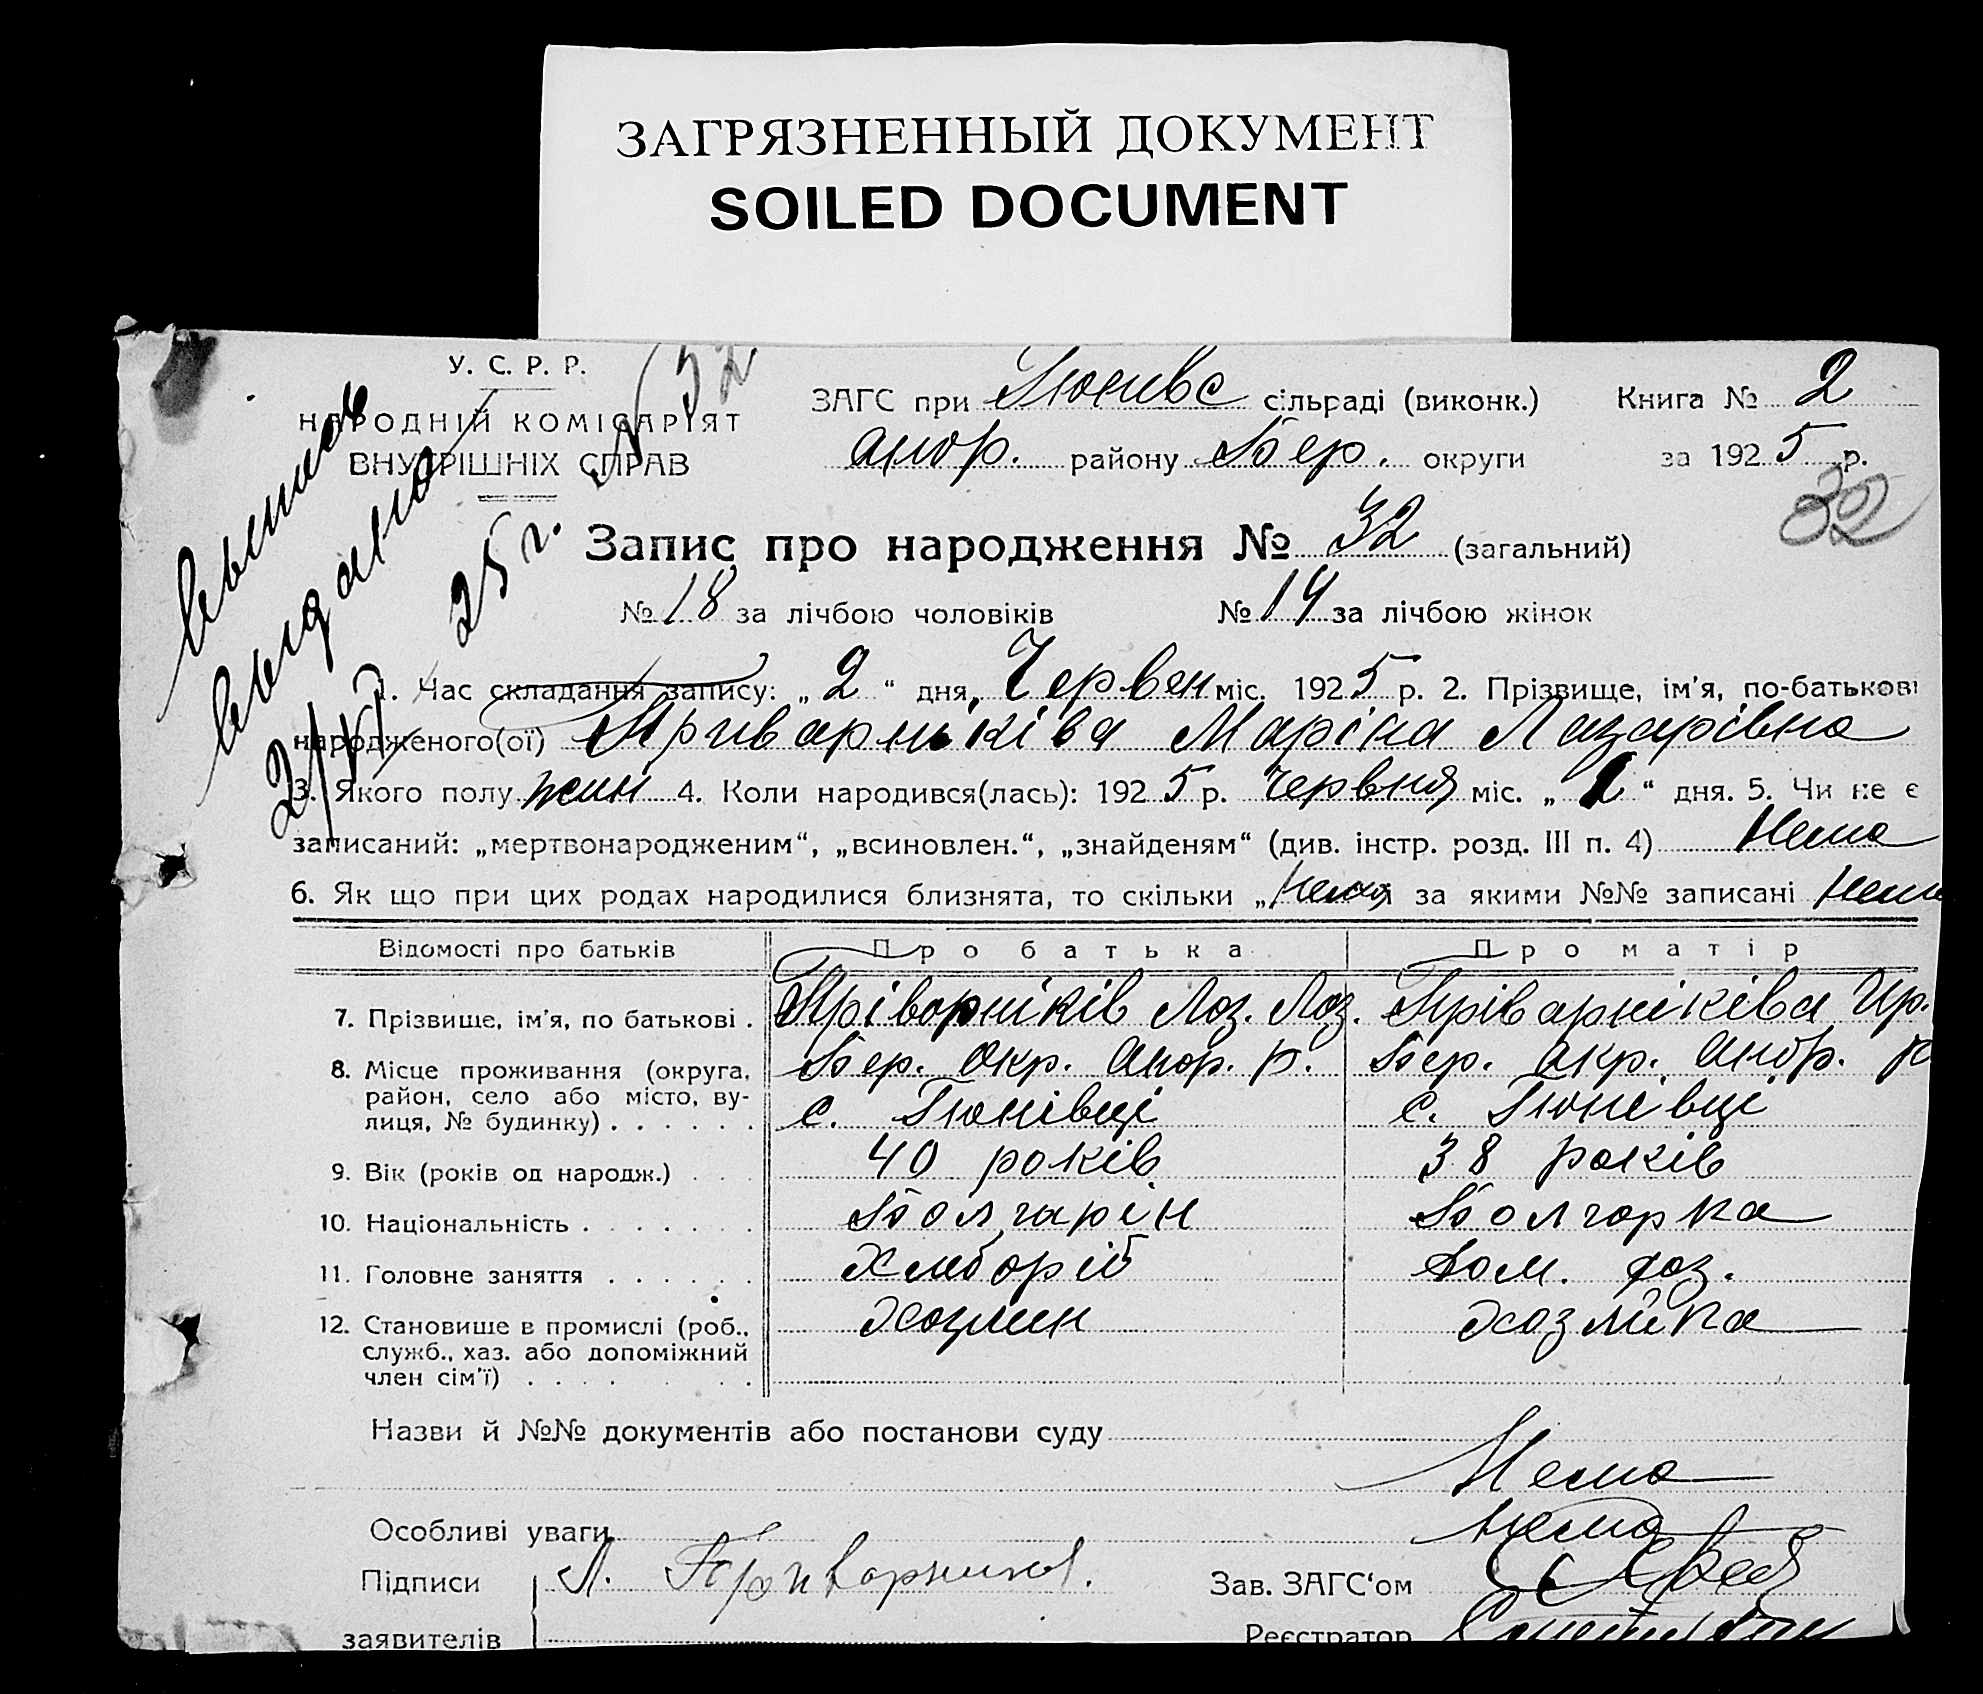 ЗАГРЯЗНЕННЫЙ ДОКУМЕНТ
SOILED DOCUMENT
У. С. Р. Р.
НАРОДНІЙ КОМІСАРІЯТ
ВНУТРІШНІХ СПРАВ
№ 32
ЗАГС при Тюнивс сільраді (виконк.)
Книга № 2
андр. району Бер. округи
за 1925 р.
32
выписка
выдана
25 г.
Запис про народження № 32 (загальний)
№ 18 за лічбою чоловіків № 14 за лічбою жінок
1. Час складання запису: „ 2 “ дня, Червен міс. 1925 р. 2. Прізвище, ім'я, по-батькові
народженого(ої) Приварніківа Маріна Лазарівна
3. Якого полу жин 4. Коли народився(лась): 1925 р. червня міс. „ 1 “ дня. 5. Чи не є
записаний: „мертвонародженим“, „всиновлен.“, „знайденям“ (див. інстр. розд. III п. 4) Нема
6. Як що при цих родах народилися близнята, то скільки „ Нема за якими №№ записані Нема
Відомості про батьків Про батька Про матір
7. Прізвище, ім'я, по батькові . Пріворніків Лоз. Лоз. Пріварніківа Ир.
8. Місце проживання (округа, Бер. Окр. Андр. р. Бер. Окр. Андр. р
район, село або місто, ву- с. Тюнівці с. Тюнівці
лиця, № будинку) . . . . . .
9. Вік (років од народж.) . . . 40 років 38 років
10. Національність . . . . . . . Болгарін Болгорка
11. Головне заняття . . . . . . Хліборіб Дом. хоз.
12. Становище в промислі (роб., хозяин хозяйка
служб., хаз. або допоміжний
член сім'ї) . . . . . . .
Назви й №№ документів або постанови суду
Нема
Особливі уваги Нема
Підписи Л. Приворников.
Зав. ЗАГС'ом
заявителів
Реєстратор